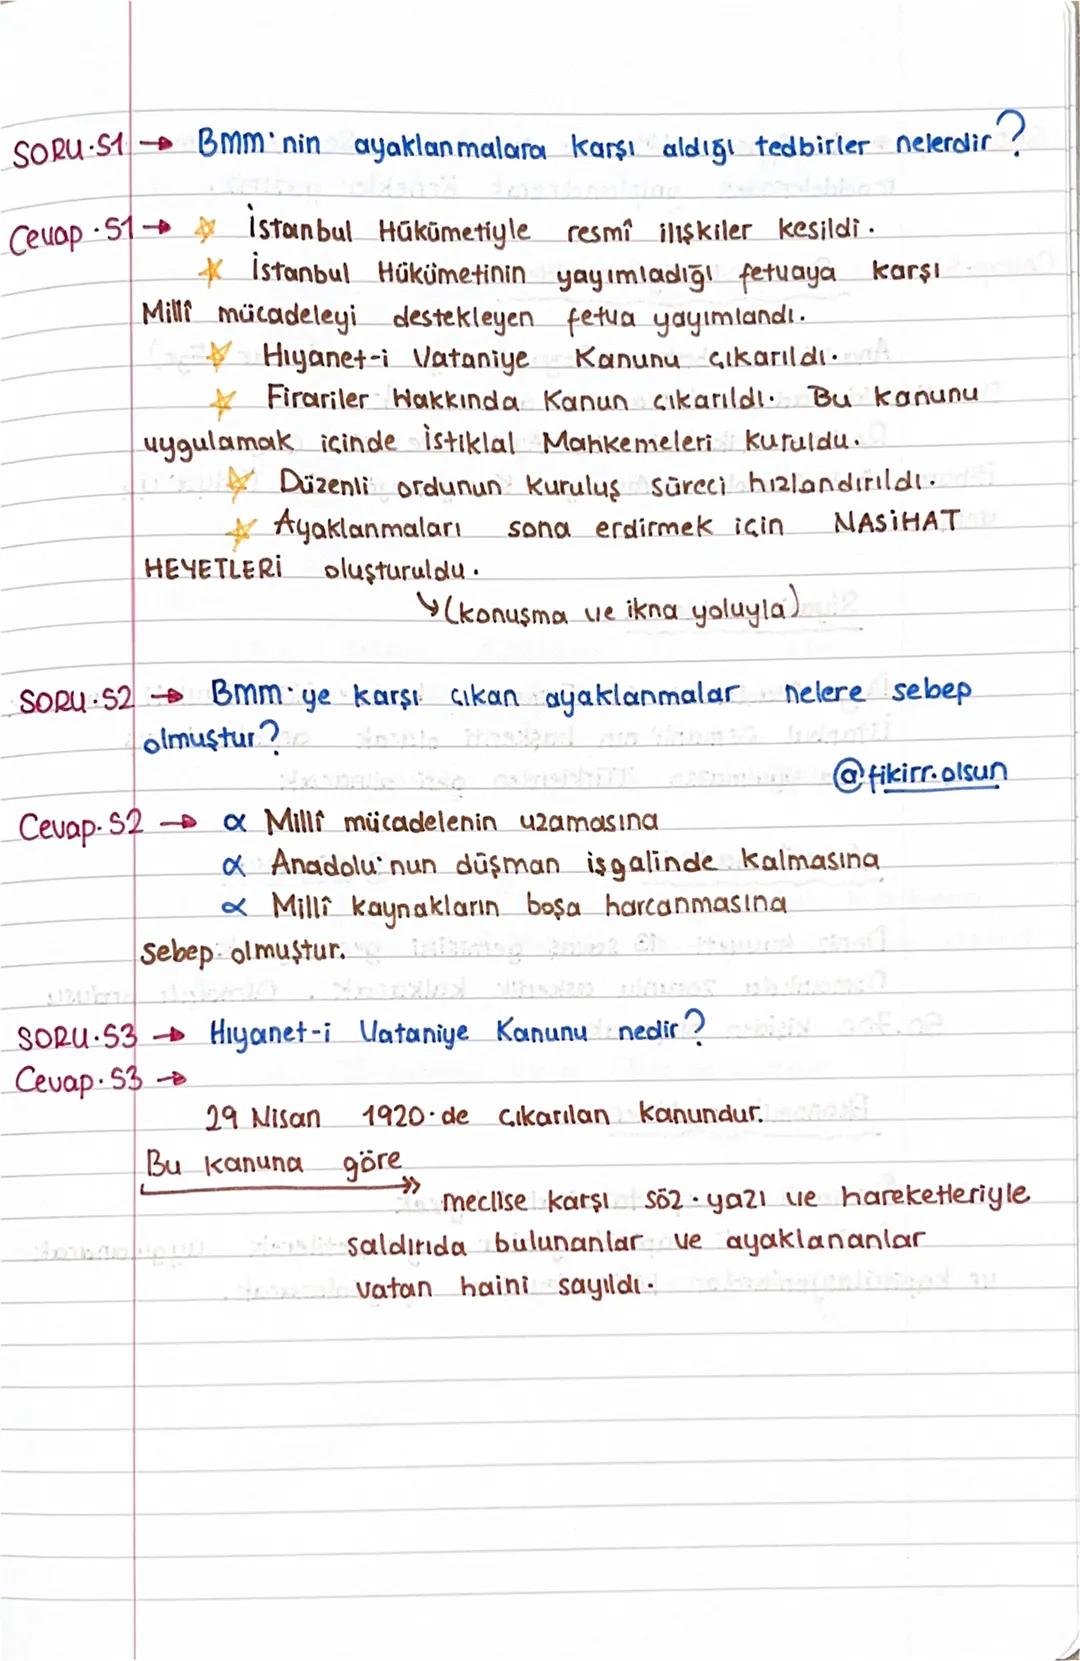 SORU.51 → Bmm'nin ayaklanmalara karşı aldığı tedbirler nelerdir?
Cevap.51 → ☆ İstanbul Hükümetiyle resmî ilişkiler kesildi.
☆ İstanbul Hükümetinin yayımladığı fetvaya karşı
Millî mücadeleyi destekleyen fetva yayımlandı.
☆ Hıyanet-i Vataniye Kanunu çıkarıldı.
☆ Firariler Hakkında Kanun çıkarıldı. Bu kanunu
uygulamak içinde İstiklal Mahkemeleri kuruldu.
☆ Düzenli ordunun kuruluş süreci hızlandırıldı.
☆ Ayaklanmaları sona erdirmek için NASİHAT
HEYETLERİ oluşturuldu.
↳(konuşma ve ikna yoluyla)
SORU.52 → Bmm'ye karşı çıkan ayaklanmalar nelere sebep
olmuştur?
@fikirr.olsun
Cevap.52 → α Millî mücadelenin uzamasına
α Anadolu'nun düşman işgalinde kalmasına
α Millî kaynakların boşa harcanmasına
sebep olmuştur.
SORU.53 → Hıyanet-i Vataniye Kanunu nedir?
Cevap.53 →
29 Nisan 1920'de çıkarılan kanundur.
Bu kanuna göre
meclise karşı söz, yazı ve hareketleriyle
saldırıda bulunanlar ve ayaklananlar
vatan haini sayıldı.